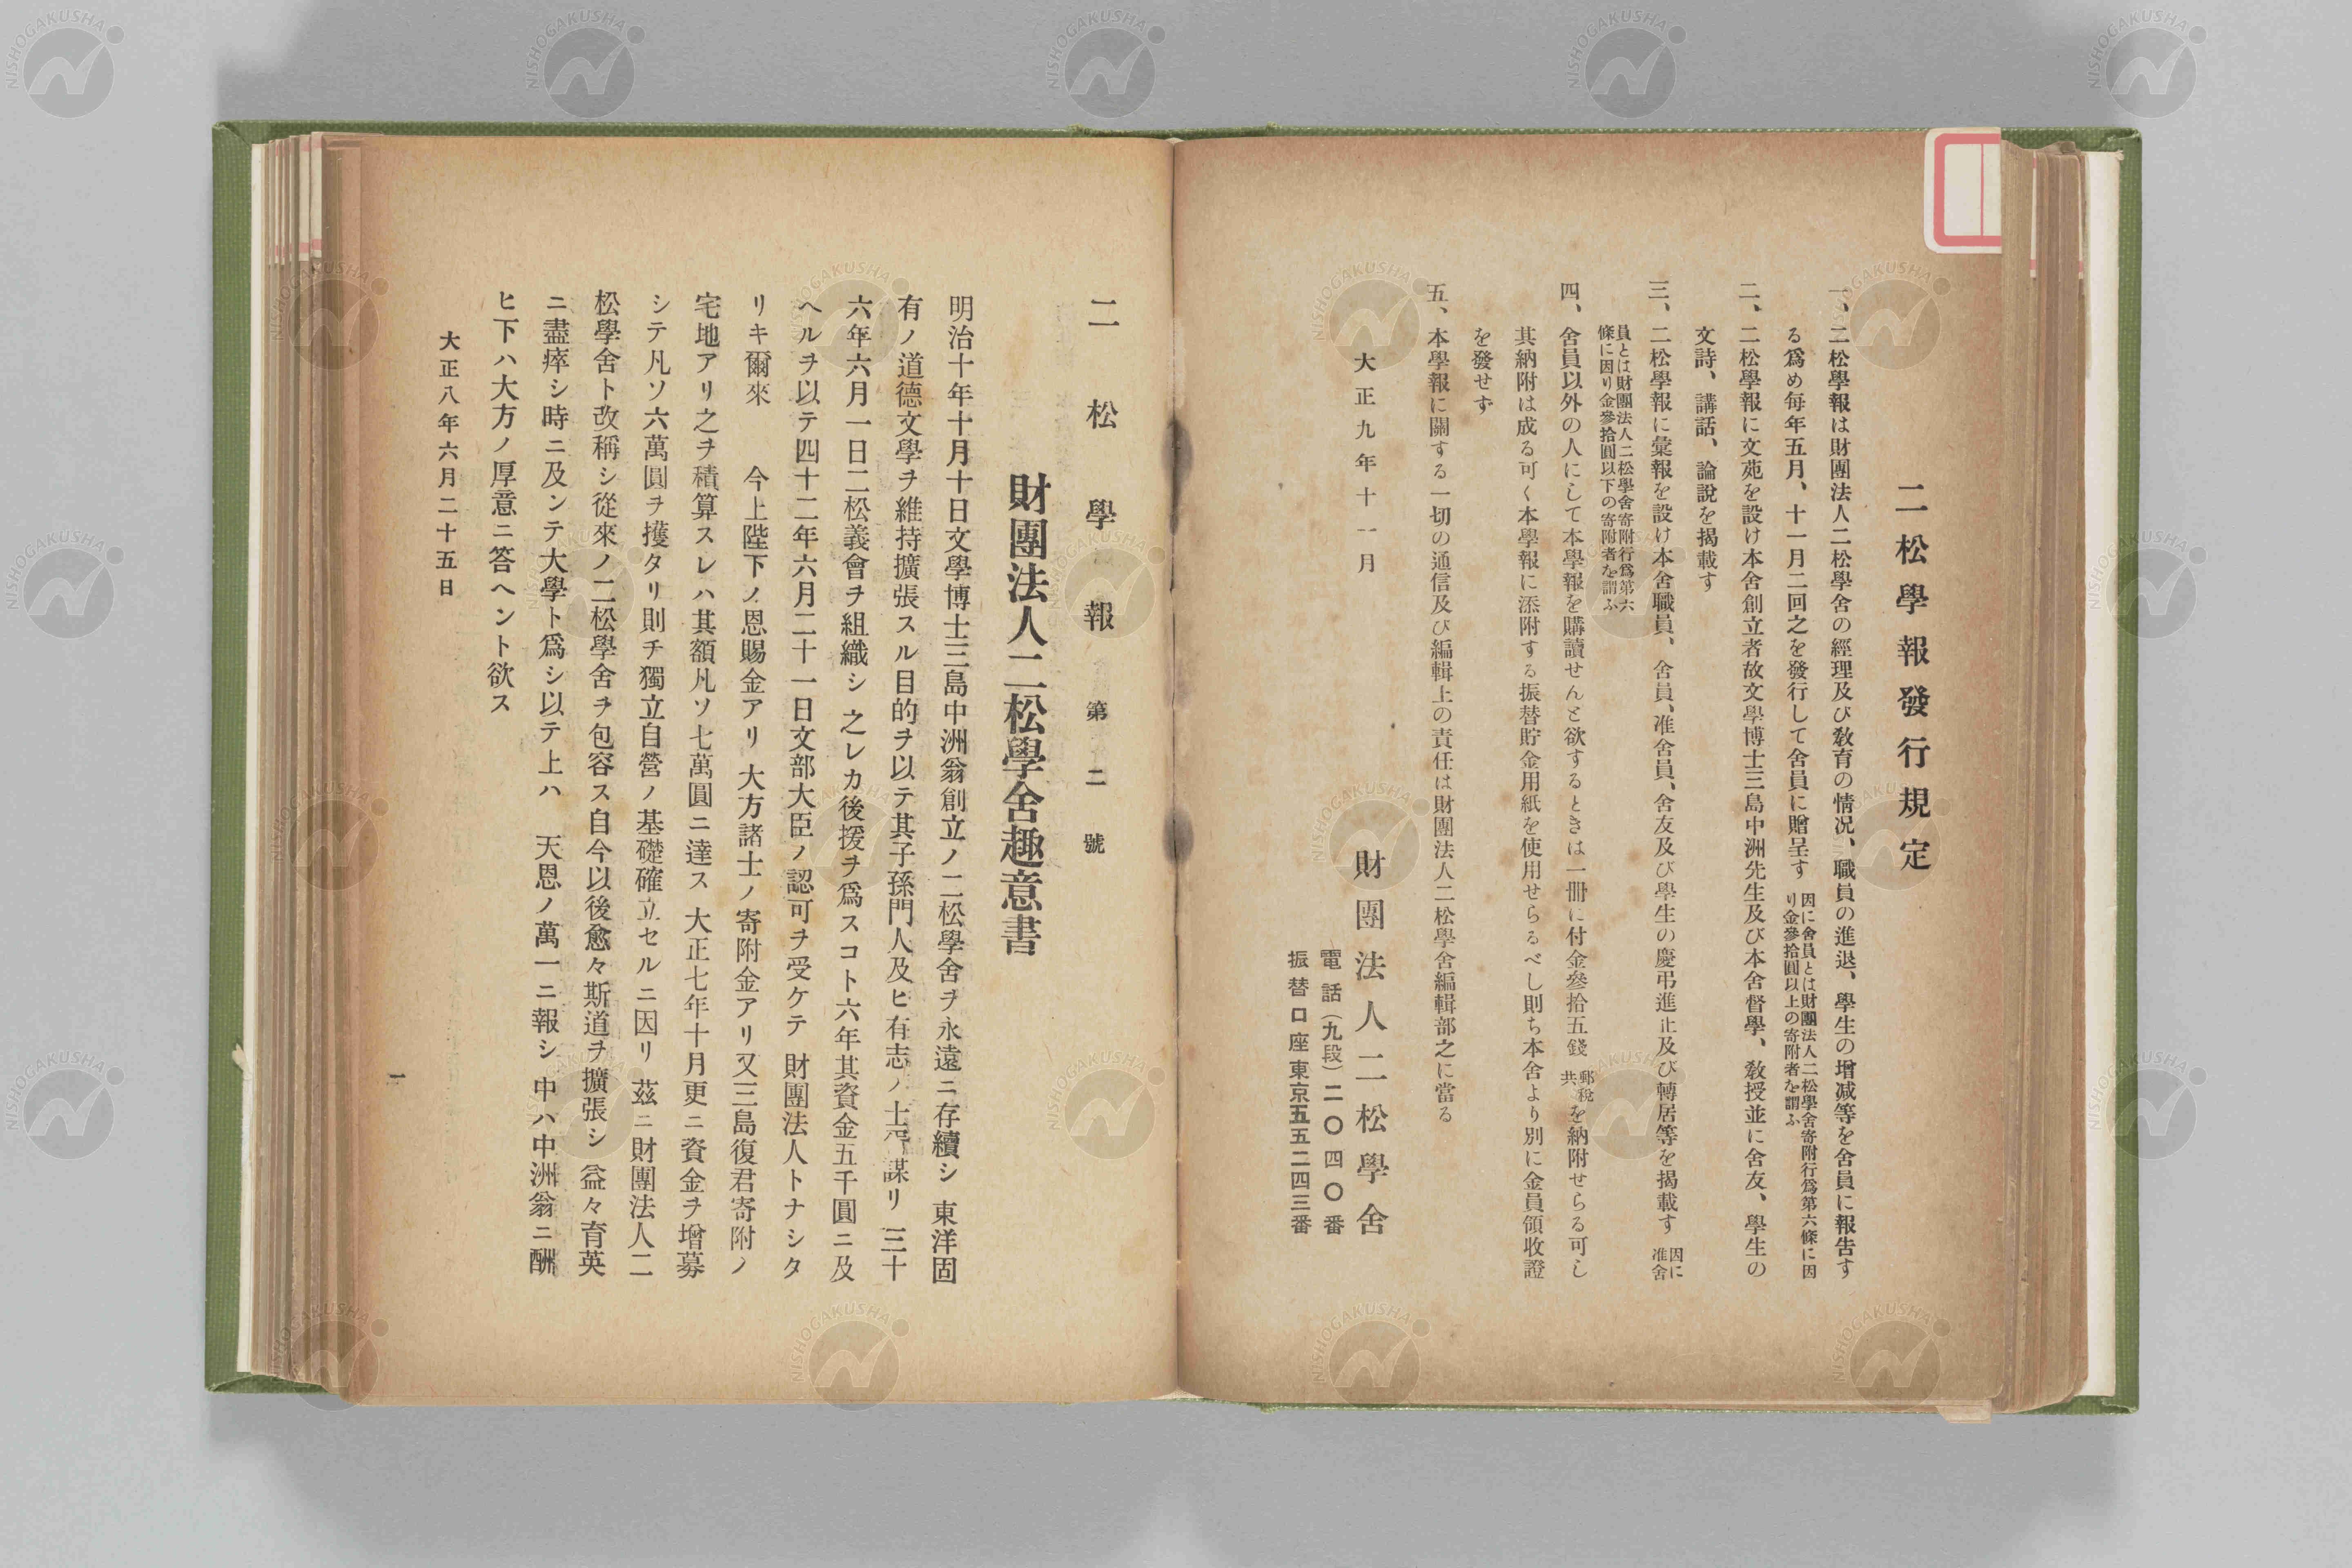 二松學報發行規定
一、二松學報は財團法人二松學舍の經理及び敎育の情況、職員の進退、學生の增減等を舍員に報吿す
る爲め每年五月、十一月二回之を發行して舍員に贈呈す 因に舍員とは財團法人二松學舍寄附行爲第六條に因り金參拾圓以上の寄附者を謂ふ
二、二松學報に文苑を設け本舍創立者故文學博士三島中洲先生及び本舍督學、敎授並に舍友、學生の
文詩、講話、論說を揭載す
三、二松學報に彙報を設け本舍職員、舍員、准舍員、舍友及び學生の慶弔進止及び轉居等を揭載す 因に准舍
員とは財團法人二松學舍寄附行爲第六條に因り金參拾圓以下の寄附者を謂ふ
四、舍員以外の人にして本學報を購讀せんと欲するときは一冊に付金參拾五錢 郵稅共 を納附せらる可し
其納附は成る可く本學報に添附する振替貯金用紙を使用せらるべし則ち本舍より別に金員領收證
を發せず
五、本學報に關する一切の通信及び編輯上の責任は財團法人二松學舍編輯部之に當る
大正九年十一月
財團法人二松學舍
電話(九段)二〇四〇番
振替口座東京五五二四三番
二松學報 第二號
財團法人二松學舍趣意書
明治十年十月十日文學博士三島中洲翁創立ノ二松學舍ヲ永遠ニ存續シ 東洋固
有ノ道德文學ヲ維持擴張スル目的ヲ以テ其子孫門人及ヒ有志ノ士咢謀リ 三十
六年六月一日二松義會ヲ組織シ 之レカ後援ヲ爲スコト六年其資金五千圓ニ及
ヘルヲ以テ四十二年六月二十一日文部大臣ノ認可ヲ受ケテ 財團法人トナシタ
リキ爾來 今上陛下ノ恩賜金アリ 大方諸士ノ寄附金アリ又三島復君寄附ノ
宅地アリ之ヲ積算スレハ其額凡ソ七萬圓ニ達ス 大正七年十月更ニ資金ヲ增募
シテ凡ソ六萬圓ヲ擭タリ則チ獨立自營ノ基礎確立セルニ因リ 茲ニ財團法人二
松學舍ト改稱シ從來ノ二松學舍ヲ包容ス自今以後愈々斯道ヲ擴張シ 益々育英
ニ盡瘁シ時ニ及ンテ大學ト爲シ以テ上ハ 天恩ノ萬一ニ報シ 中ハ中洲翁ニ酬
ヒ下ハ大方ノ厚意ニ答ヘント欲ス
大正八年六月二十五日
一
NISHOGAKUSHA